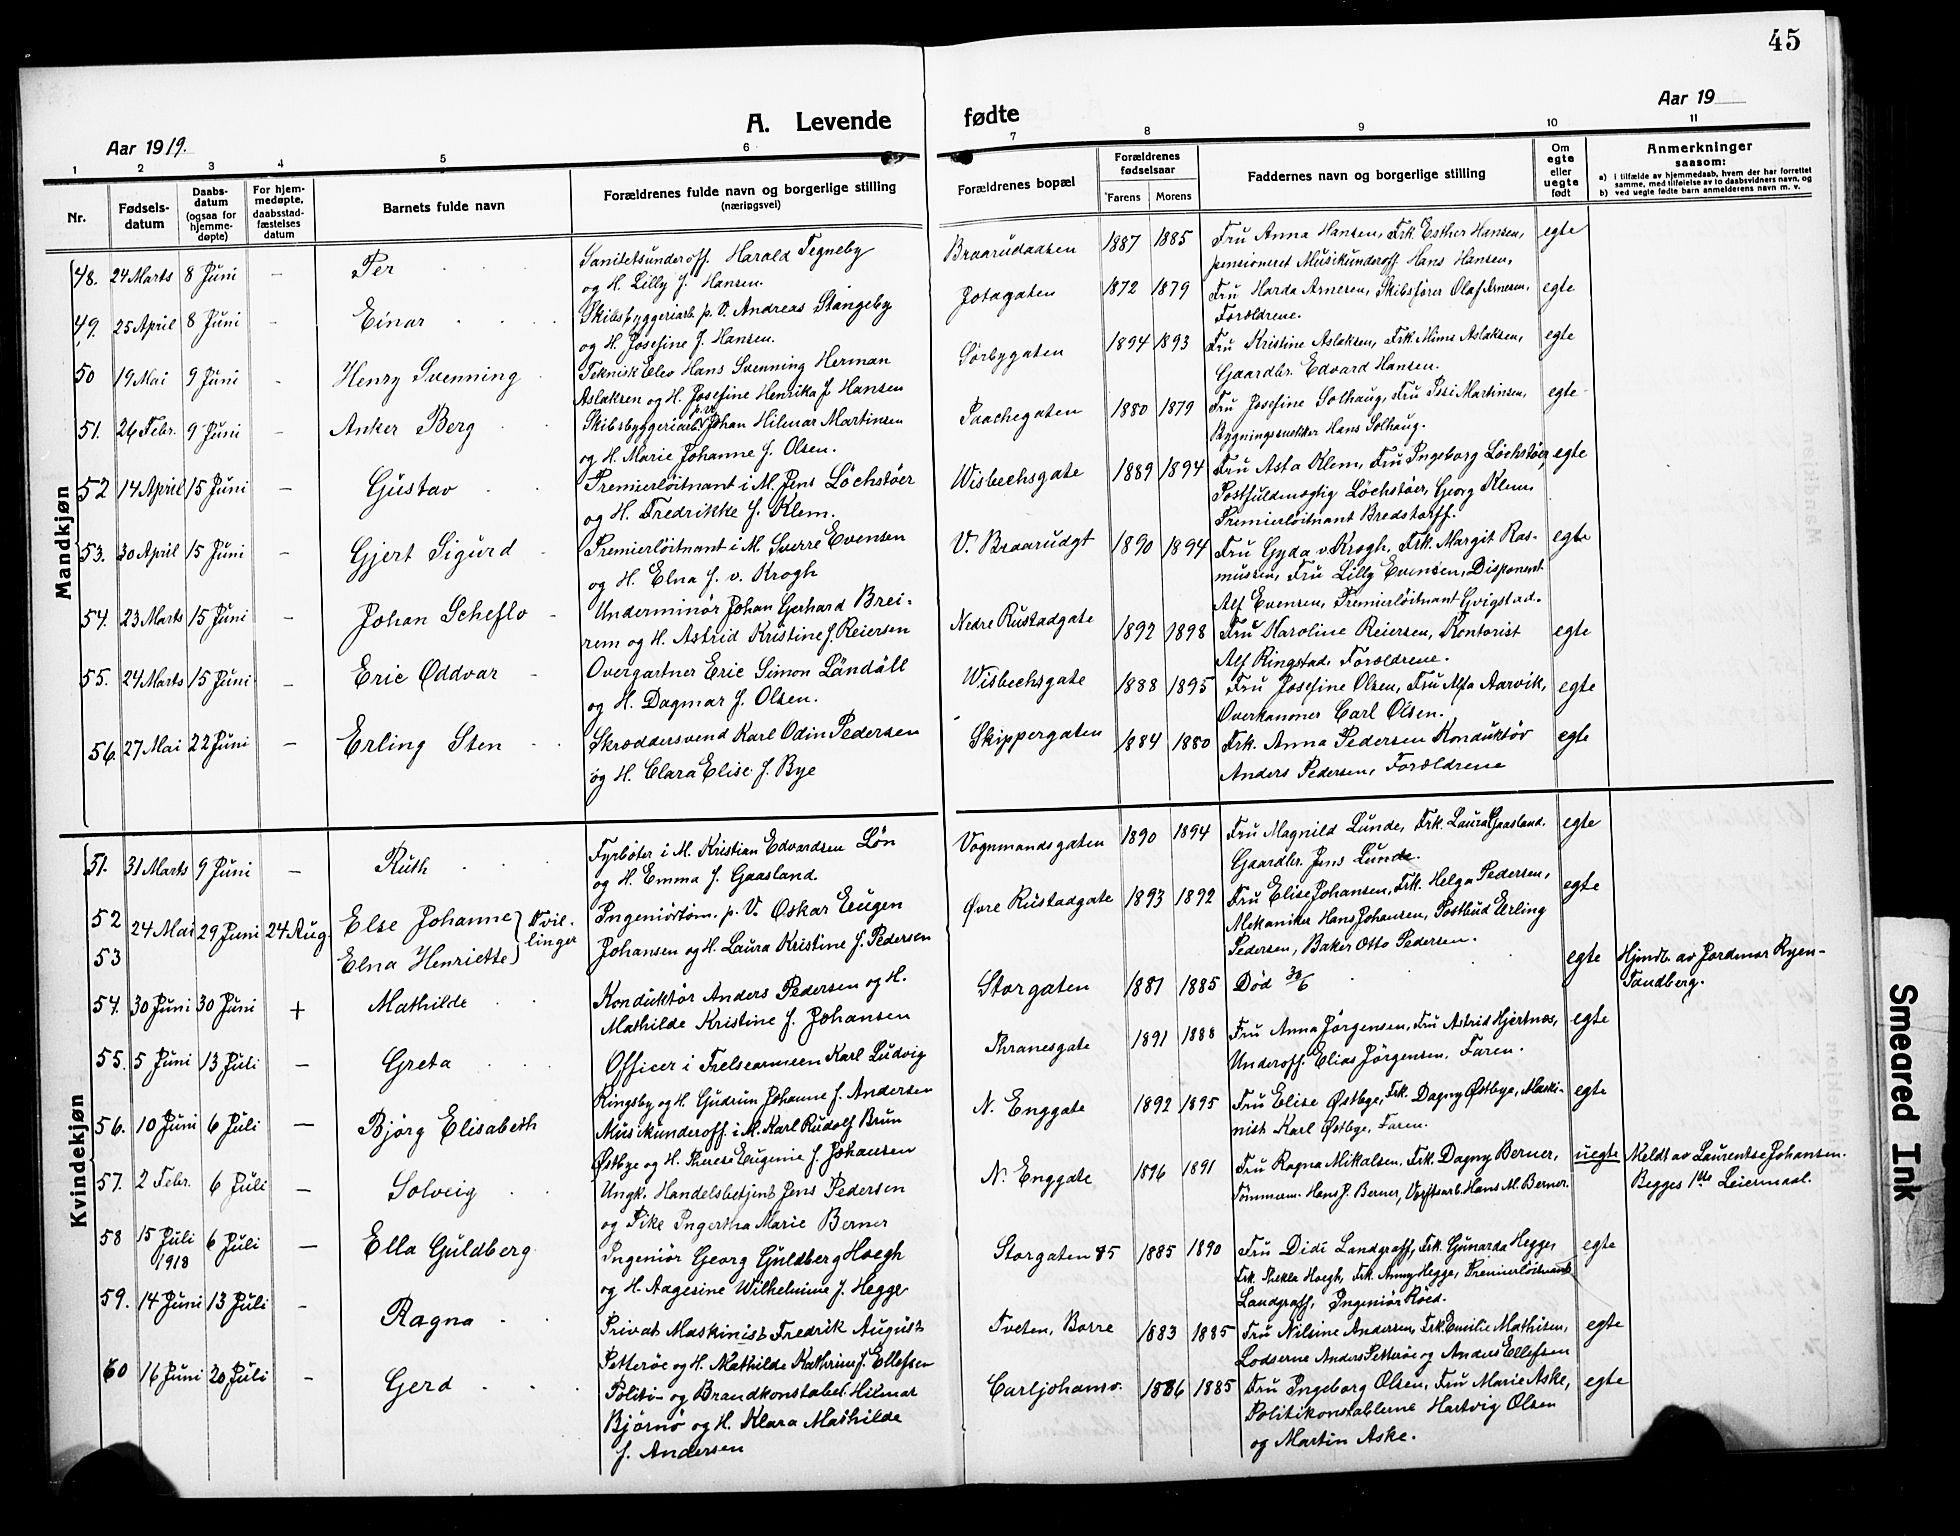 45
A. Levende fødte
Aar 1919.
Aar 19
1 2 3 4 5 6 7 8 9 10 11
Nr.
Fødsels-
datum
Daabs-
datum
(ogsaa for
hjemme-
døpte)
For hjem-
medøpte,
daabsstad-
fæstelses
datum
Barnets fulde navn
Forældrenes fulde navn og borgerlige stilling
(næringsvei)
Forældrenes bopæl
Forældrenes
fødselsaar
Farens Morens
Faddernes navn og borgerlige stilling
Om
egte
eller
uegte
født
Anmerkninger
saasom:
a) i tilfælde av hjemmedaab, hvem der har forrettet
samme, med tilføielse av to daabsvidners navn, og
b) ved uegte fødte barn anmelderens navn m. v.
Mandkjøn
48. 24 Marts 8 Juni — Per
Sanitetsunderoff. Harald Tegneby
og H. Lilly f. Hansen.
Braarudaasen 1887 1885
Fru Anna Hansen, Frk. Esther Hansen,
pensioneret Musikunderoff. Hans Hansen,
egte
49. 25 April 8 Juni - Einar
Skibsbyggeriarb. p. V. Andreas Stangeby
og H. Josefine f. Hansen.
Jotagaten 1872 1879
Fru Harda Arnesen, Skibsfører Olaf Arnesen,
Forældrene.
egte
50 19 Mai 9 Juni - Henry Svenning
Teknisk Elev Hans Svenning Herman
Aslaksen og H. Josefine Henrika f. Hansen
Sørbygaten 1894 1893
Fru Kristine Aslaksen, Frk. Mims Aslaksen,
Gaardbr. Edvard Hansen.
egte
51. 26 Febr. 9 Juni - Anker Berg
Skibsbyggeriarb. p. v. Johan Hilmar Martinsen
og H. Marie Johanne f. Olsen.
Paachegaten 1880 1879
Fru Josefine Solhaug, Fru Issi Martinsen,
Bygningssnekker Hans Solhaug.
egte
52 14 April 15 Juni — Gustav
Premierløitnant i M. Jens Løchstøer
og H. Fredrikke f. Klem.
Wisbechsgate 1889 1894
Fru Asta Klem, Fru Ingeborg Løchstøer,
Postfuldmægtig Løchstøer, Georg Klem,
Premierløitnant Bredstorff.
egte
53. 30 April 15 Juni — Gjert Sigurd
Premierløitnant i M. Sverre Evensen
og H. Elna f. v. Krogh
V. Braarudgt 1890 1894
Fru Gyda v. Krogh, Frk. Margit Ras-
mussen, Fru Lilly Evensen, Disponent
Alf Evensen, Premierløitnant Gvigstad.
egte
54. 23 Marts 15 Juni — Johan Scheflo
Underminør Johan Gerhard Brei-
rem og H. Astrid Kristine f. Reiersen
Nedre Rustadgate 1892 1898
Fru Karoline Reiersen, Kontorist
Alf Ringstad, Forældrene.
egte
55. 24 Marts 15 Juni — Eric Oddvar
Overgartner Eric Simon Låndåll
og H. Dagmar f. Olsen.
Wisbechsgate 1888 1895
Fru Josefine Olsen, Fru Alfa Aarvik,
Overkanoner Carl Olsen.
egte
56. 27 Mai 22 Juni — Erling Sten
Skræddersvend Karl Odin Pedersen
og H. Clara Elise f. Bye
Skippergaten 1884 1880
Frk. Anna Pedersen Konduktør
Anders Pedersen, Forældrene
egte
Kvindekjøn
51. 31 Marts 9 Juni — Ruth
Fyrbøter i M. Kristian Edvardsen Løn
og H. Emma f. Gaasland.
Vognmandsgaten 1890 1894
Fru Magnild Lunde, Frk. Laura Gaasland.
Gaardbr. Jens Lunde.
egte
52
53
24 Mai 29 Juni 24 Aug.
Else Johanne
Elna Henriette
Tvil-
linger
Ingeniørtøm. p. V. Oskar Eugen
Johansen og H. Laura Kristine f. Pedersen
Øvre Rustadgate 1893 1892
Fru Elise Johansen, Frk. Helga Pedersen,
Mekaniker Hans Johansen, Postbud Erling
Pedersen, Baker Otto Pedersen.
egte
54. 30 Juni 30 Juni + Mathilde
Konduktør Anders Pedersen og H.
Mathilde Kristine f. Johansen
Storgaten 1881 1885
Død 30/6
egte
Hjmdb. av Jordmor Ryen-
Tandberg.
55. 5 Juni 13 Juli — Greta
Officer i Frelsearmeen Karl Ludvig
Ringsby og H. Gudrun Johanne f. Andersen
Thranesgate 1891 1888
Fru Anna Jørgensen, Fru Astrid Hjertnæs,
Underoff. Elias Jørgensen, Faren.
egte
56. 10 Juni 6 Juli — Bjørg Elisabeth
Musikunderoff. i M. Karl Rudolf Brun
Østbye og H. Therese Eugenie f. Johansen
N. Enggate 1892 1895
Fru Elise Østbye, Frk. Dagny Østbye, Maski-
nist Karl Østbye, Faren.
egte
57. 2 Febr. 6 Juli — Solveig
Ungk. Handelsbetjent Jens Pedersen
og Pike Ingertha Marie Berner
N. Enggate 1896 1891
Fru Ragna Mikalsen, Frk. Dagny Berner,
Tømmerm. Hans J. Berner, Verftsarb. Hans M. Berner.
uegte
Meldt av Laurentse Johansen.
Begges 1ste Leiermaal.
58 15 Juli
1918
6 Juli — Ella Guldberg
Ingeniør Georg Guldberg Høegh
og H. Aagesine Wilhelmine f. Hegge
Storgaten 85 1885 1890
Fru Didi Landgraff, Frk. Gunarda Hegge,
Frk. Thekla Høegh, Frk. Anny Hegge, Premierløitnant
Landgraff, Ingeniør Röed.
egte
59. 14 Juni 13 Juli - Ragna
Privat Maskinist Fredrik August
Petterøe og H. Mathilde Kathrine f. Ellefsen
Tveten, Borre 1883 1885
Fru Nilsine Andersen, Frk. Emilie Mathisen,
Lodserne Anders Petterøe og Anders Ellefsen
egte
60 16 Juni 20 Juli - Gerd
Politi- og Brandkonstabel Hilmar
Bjørnø og H. Klara Mathilde
f. Andersen
Carljohansv. 1886 1885
Fru Ingeborg Olsen, Fru Marie Aske,
Politikonstablerne Hartvig Olsen
og Martin Aske.
egte
Smeared Ink